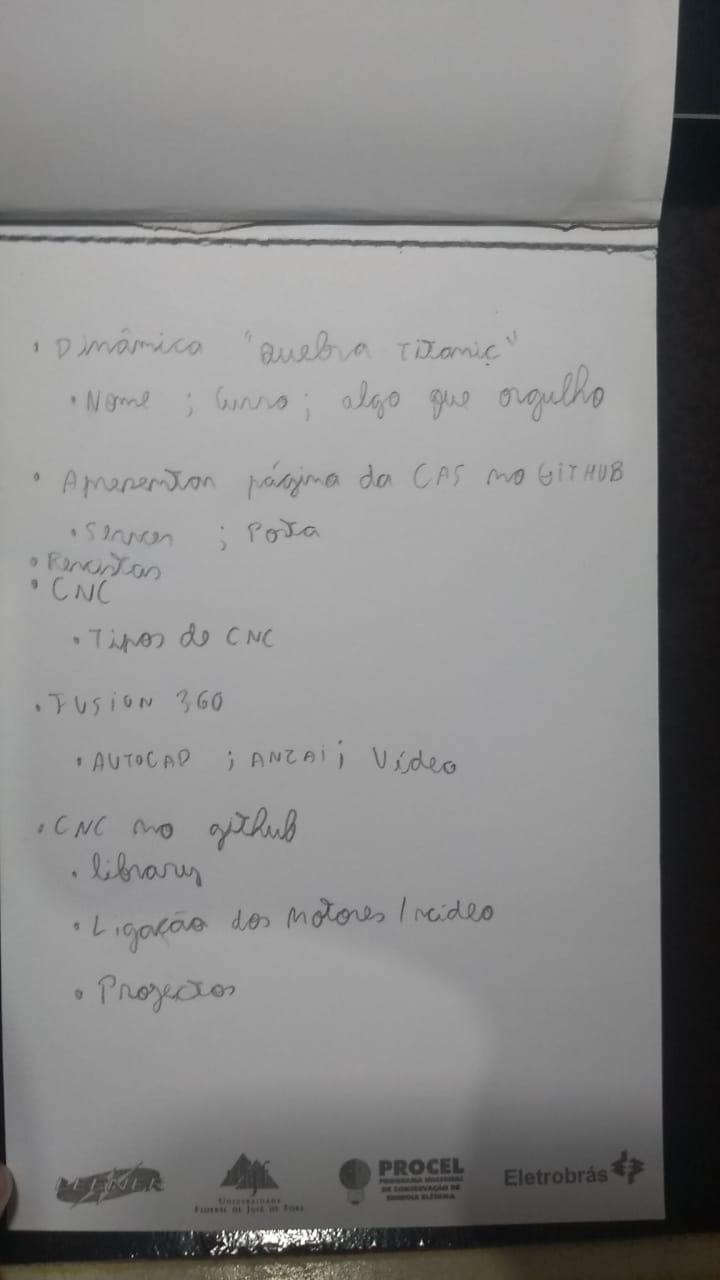 • Dinâmica "Quebra Titanic"
• Nome ; Curso ; algo que orgulho
• Apresentar página da CAS no GITHUB
• Server ; Posta
• Revistas
• CNC
• Tipos de CNC
• FUSION 360
• AUTOCAD ; ANZAI ; Vídeo
• CNC no github
• library
• Ligação dos Motores / video
• Projectos
LEENER
UNIVERSIDADE
FEDERAL DE JUIZ DE FORA
PROCEL
PROGRAMA NACIONAL
DE CONSERVAÇÃO DE
ENERGIA ELÉTRICA
Eletrobrás